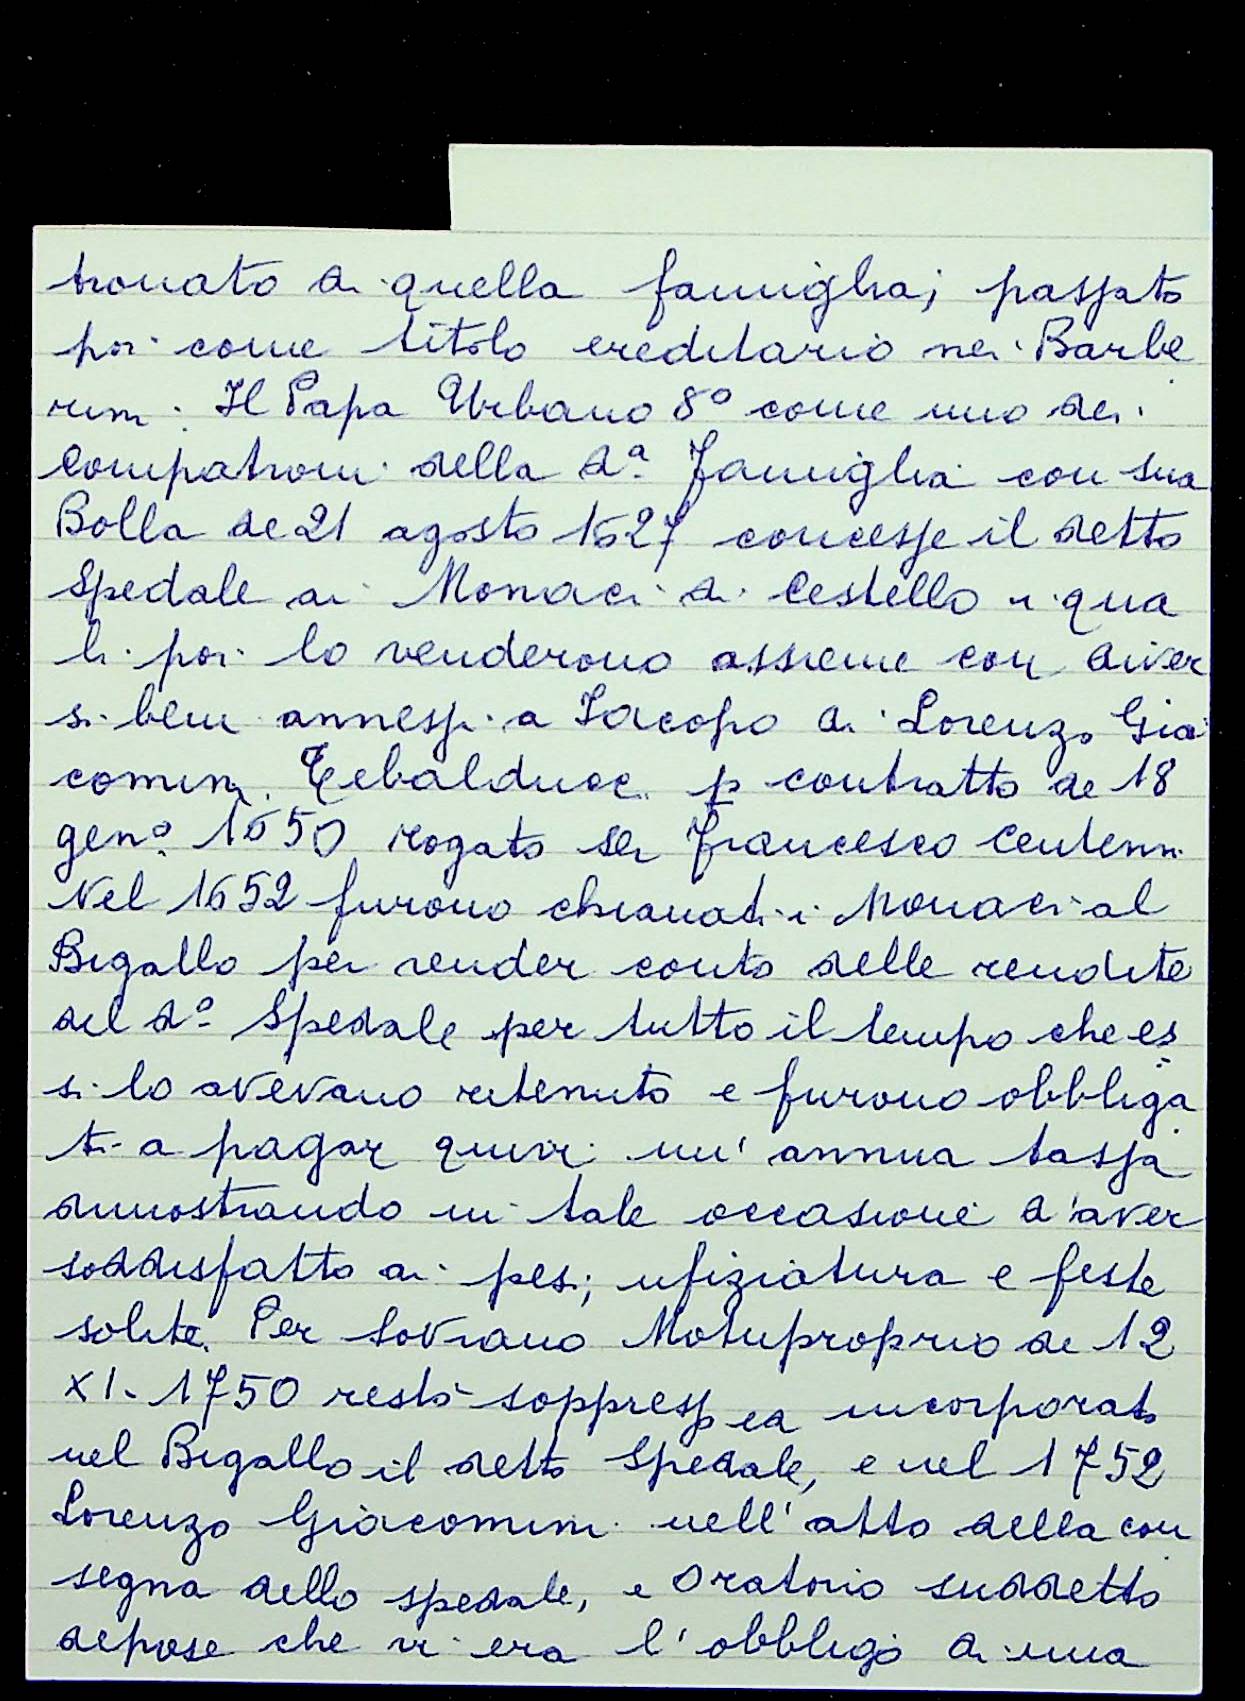 tronato di quella famiglia; passato
poi come titolo ereditario nei Barbe
rini. Il Papa Urbano 8º come uno dei
Compatroni della dª. Famiglia con sua
Bolla de 21 agosto 1627 concesse il detto
Spedale ai Monaci di Cestello i qua
li poi lo venderono assieme con diver
si beni annessi a Iacopo di Lorenzo Gia
comini Tebalducci p contratto de 18
genº. 1650 rogato Ser Francesco Centenni
Nel 1652 furono chiamati i Monaci al
Bigallo per render conto delle rendite
del dº. Spedale per tutto il tempo che es
si lo avevano ritenuto e furono obbliga
ti a pagar quivi un' annua tassa
dimostrando in tale occasione d'aver
soddisfatto ai pesi; ufiziatura e feste
solite. Per Sovrano Motuproprio de 12
XI. 1750 restò soppresso ed incorporato
nel Bigallo il detto Spedale, e nel 1752
Lorenzo Giacomini nell' atto della con
segna dello spedale, e Oratorio suddetto
depose che vi era l' obbligo di una